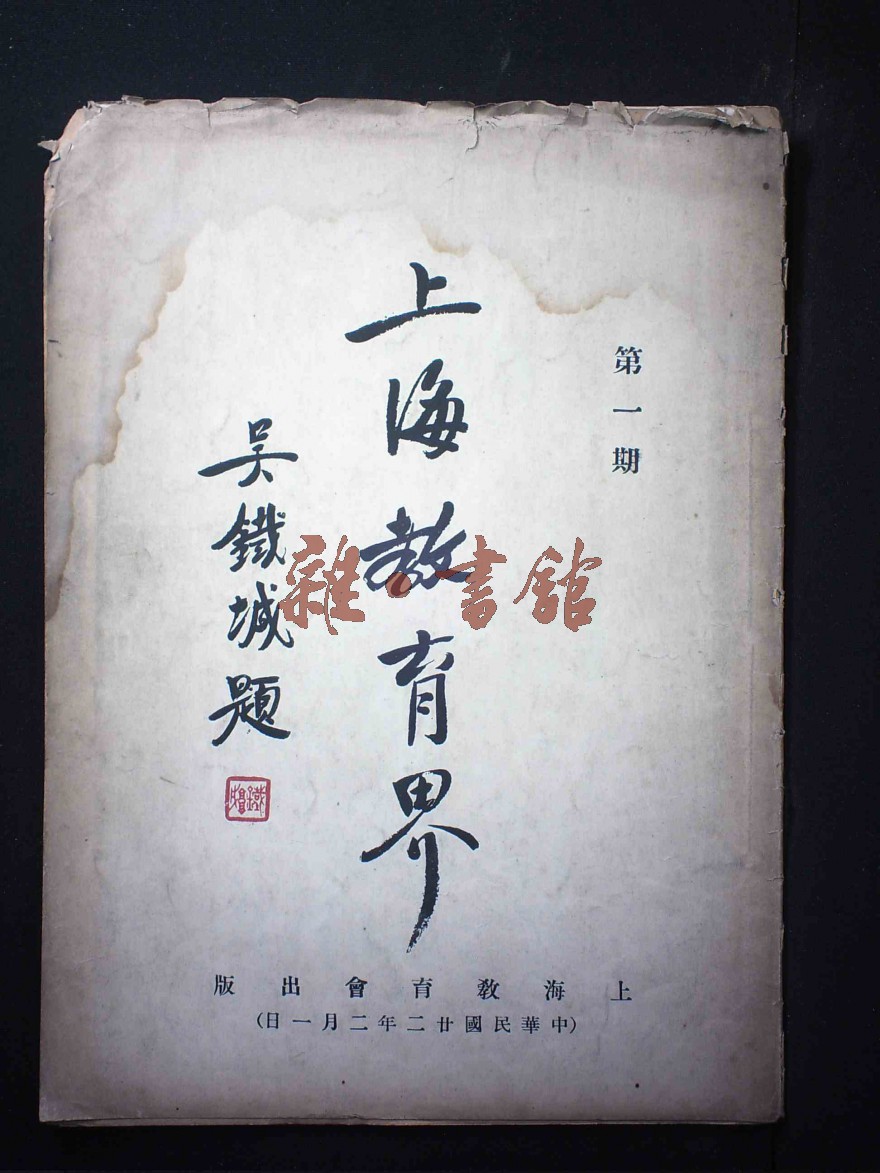 第一期
上海教育界
吳鐵城題
鐵城
上海教育會出版
(中華民國廿二年二月一日)
雜書館